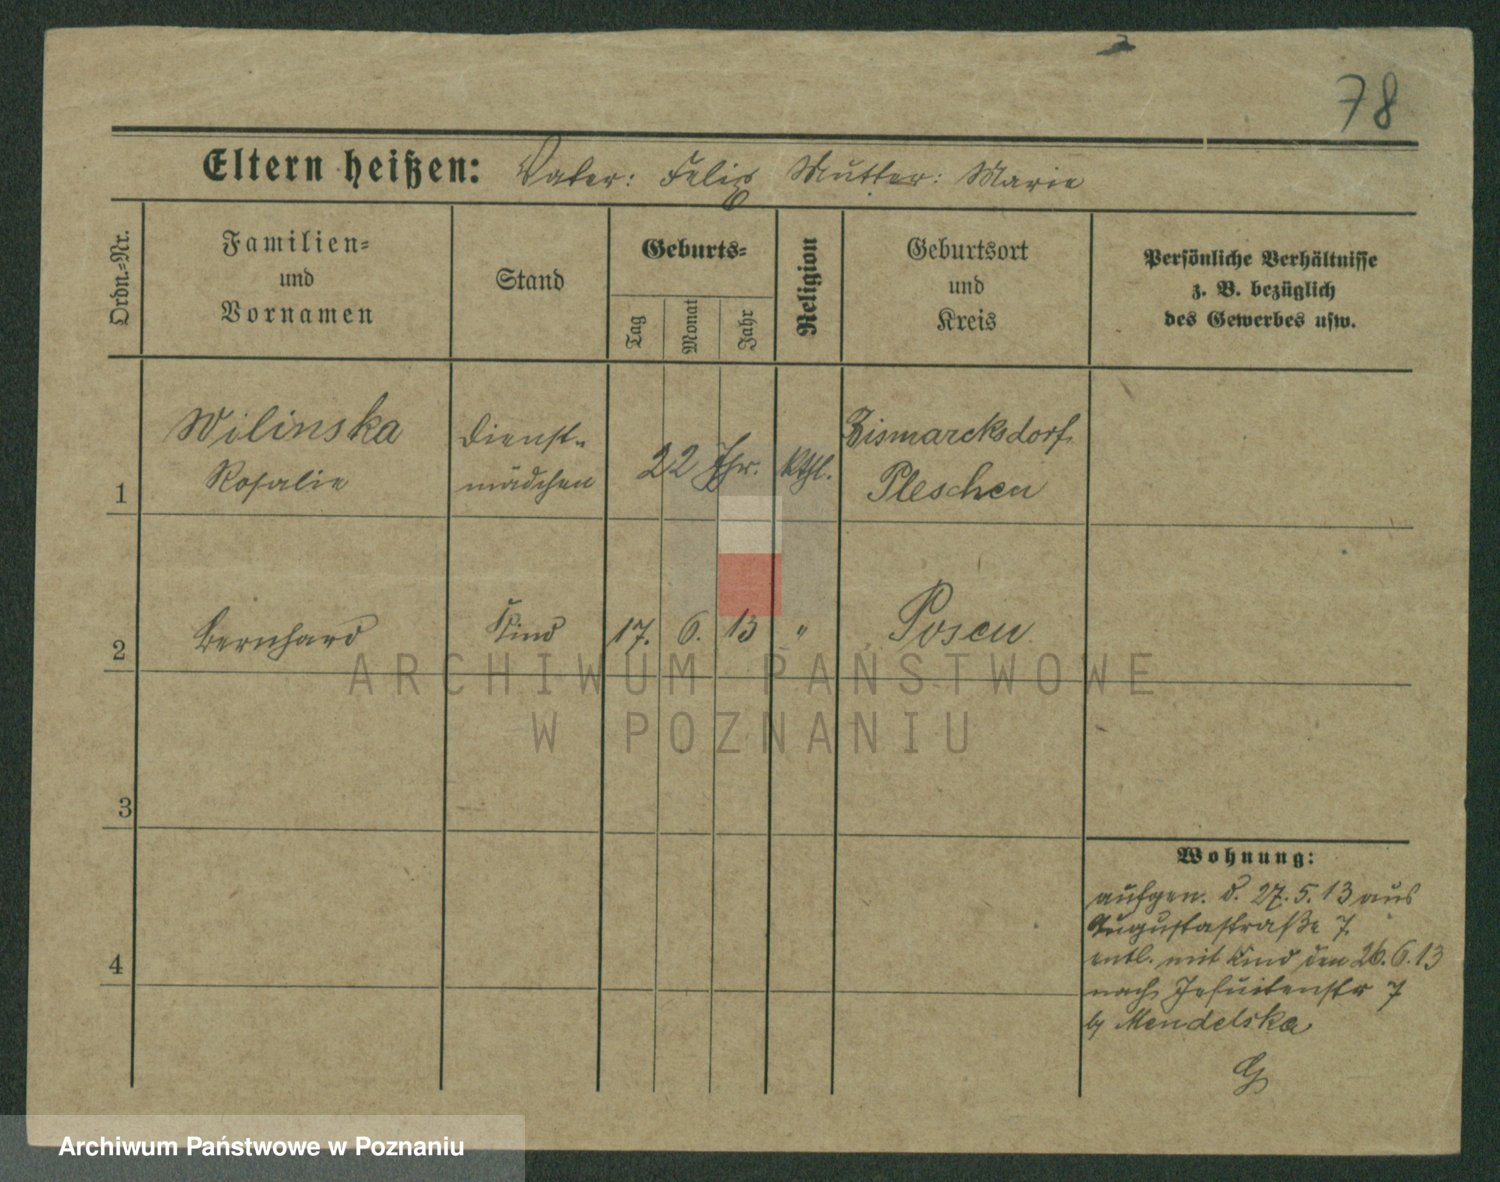 78
Eltern heißen: Vater: Felix Mutter: Marie
Ordn.-Nr.
Familien-
und
Vornamen
Stand
Geburts-
Tag
Monat
Jahr
Religion
Geburtsort
und
Kreis
Persönliche Verhältnisse
z. B. bezüglich
des Gewerbes usw.
Wilinska Dienst- Bismarcksdorf
1 Rosalie mädchen 22 Jhr. kthl. Pleschen
2 Bernhard Kind 17. 6. 13 " Posen
3
4
Wohnung:
aufgen. d. 27.5.13 aus
Augustastraße 7.
entl. mit Kind den 26.6.13
nach Jesuitenstr 7
by Mendelska
ARCHIWUM PAŃSTWOWE
W POZNANIU
Archiwum Państwowe w Poznaniu